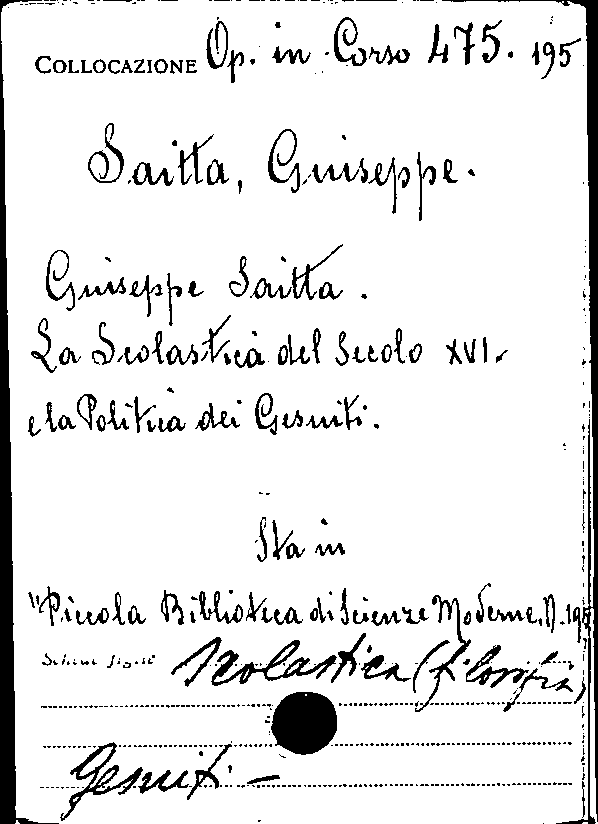 COLLOCAZIONE Op. in Corso 475. 195
Saitta, Giuseppe.
Giuseppe Saitta.
La Scolastica del Secolo XVI.
e la Politica dei Gesuiti.
Sta in
"Piccola Biblioteca di Scienze Moderne, N. 195
Scolastica (filosofia)
Gesuiti. —